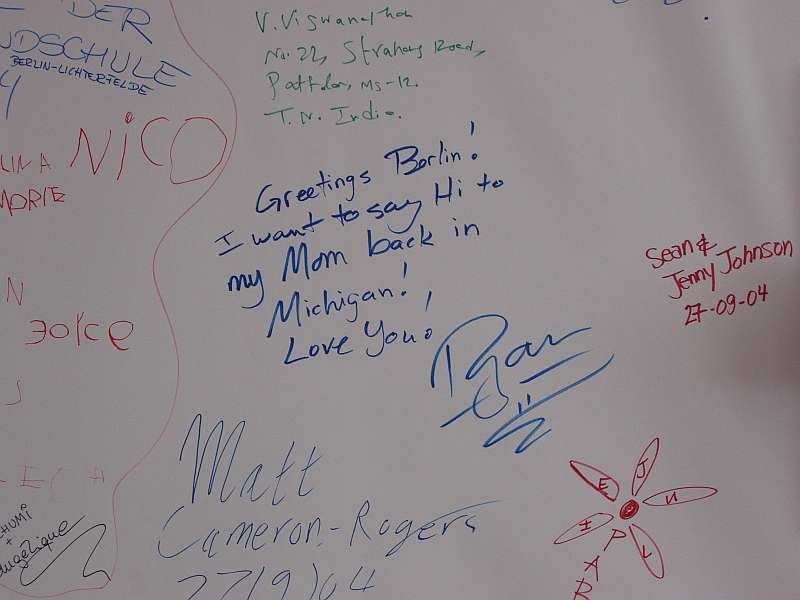 DER
NDSCHULE
BERLIN-LICHTERFELDE
V. Viswanathan
No. 22, Strahans Road,
T. N. India.
LINA
NiCO
MORIE
Greetings Berlin!
I want to say Hi to
my Mom back in
Michigan!
Love You!
Ryan
Sean &
Jenny Johnson
27-09-04
N
JOICE
Matt
Cameron-Rogers
27/9/04
HUMI
+
Angelique
E
J
U
I
L
P
A
R